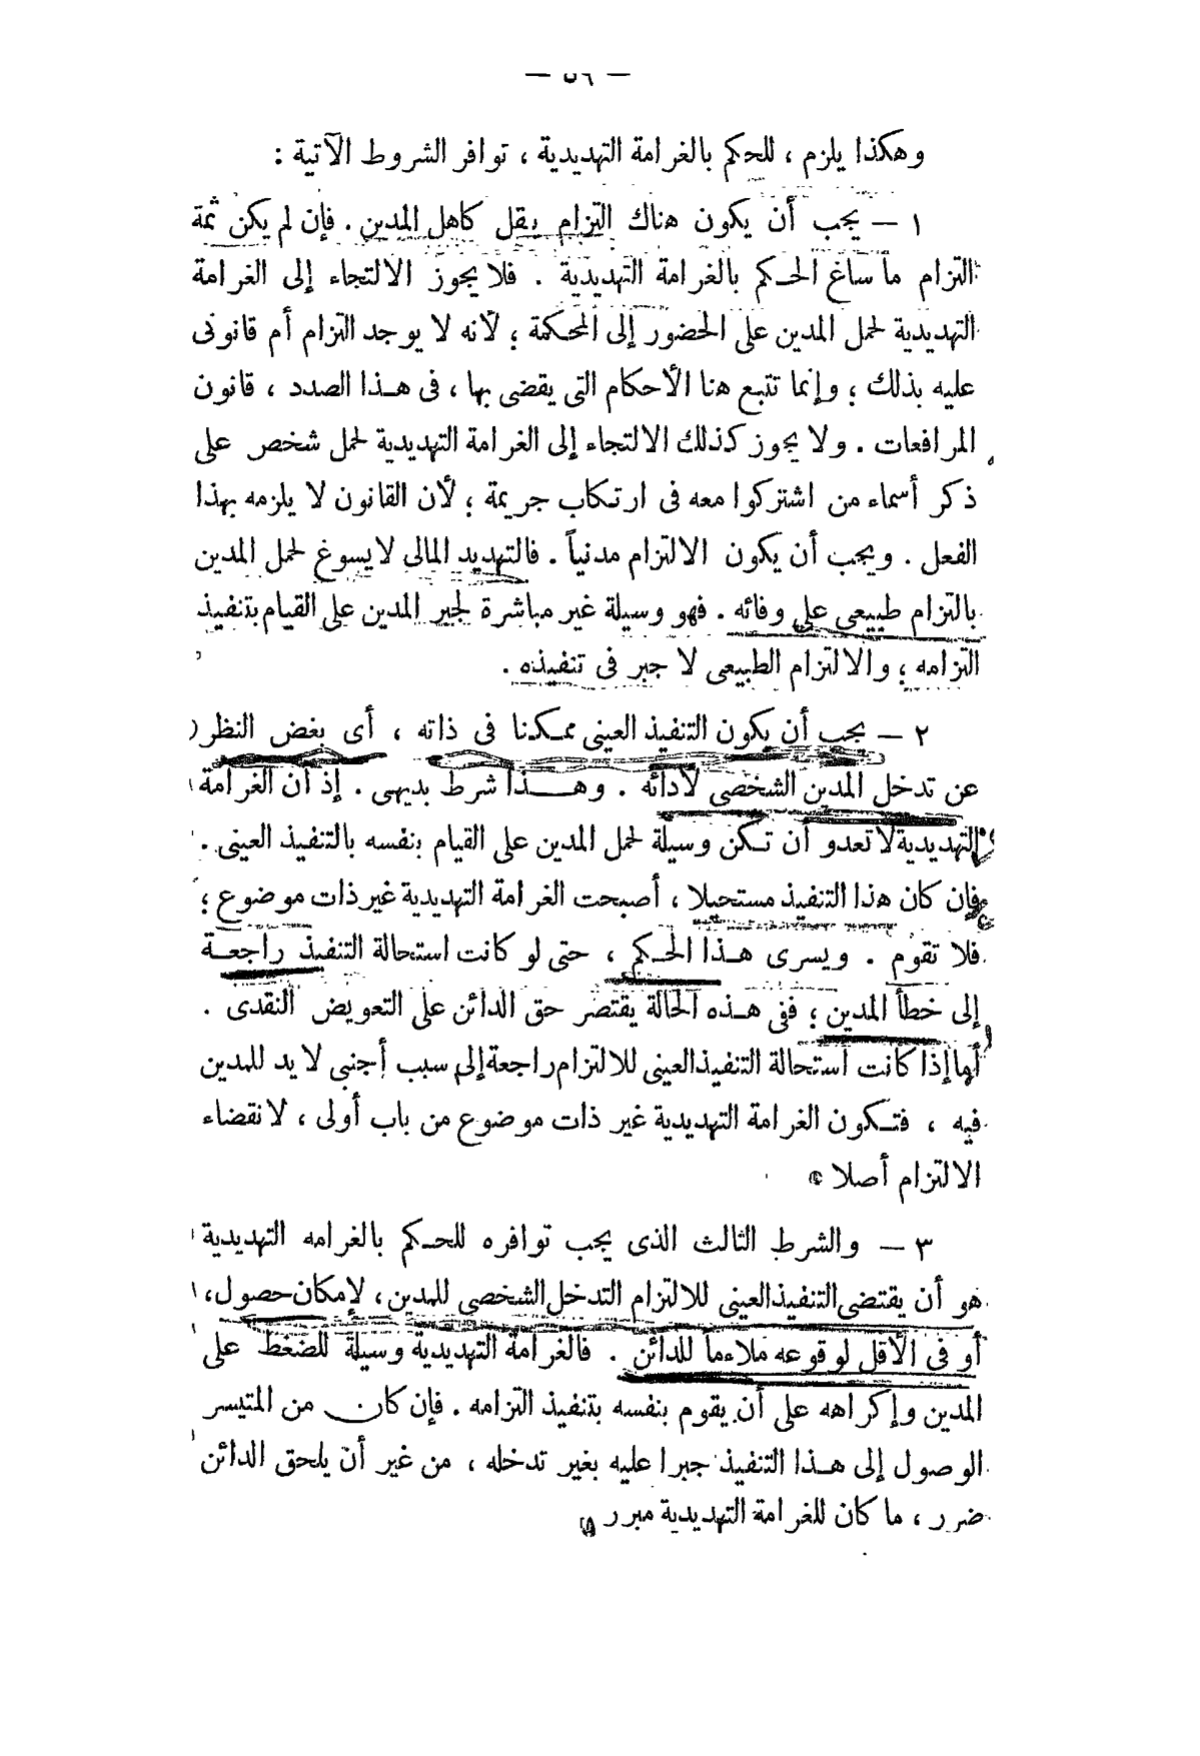 — ٥٦ —
وهكذا يلزم ، للحكم بالغرامة التهديدية ، توافر الشروط الآتية :
١ — يجب أن يكون هناك التزام يقل كاهل المدين . فإن لم يكن ثمة
التزام ما ساغ الحـكم بالغرامة التهديدية . فلا يجوز الالتجاء إلى الغرامة
التهديدية لحمل المدين على الحضور إلى المحكمة ؛ لأنه لا يوجد التزام أم قانونى
عليه بذلك ؛ وإنما تتبع هنا الأحكام التى يقضى بها ، فى هـذا الصدد ، قانون
المرافعات . ولا يجوز كذلك الالتجاء إلى الغرامة التهديدية لحمل شخص على
ذكر أسماء من اشتركوا معه فى ارتكاب جريمة ؛ لأن القانون لا يلزمه بهذا
الفعل . ويجب أن يكون الالتزام مدنياً . فالتهديد المالى لا يسوغ لحمل المدين
بالتزام طبيعى على وفائه . فهو وسيلة غير مباشرة لجبر المدين على القيام بتنفيذ
التزامه ؛ والالتزام الطبيعى لا جبر فى تنفيذه .
٢ — يجب أن يكون التنفيذ العينى ممـكنا فى ذاته ، أى بغض النظر
عن تدخل المدين الشخصى لأدائه . وهـــذا شرط بديهى . إذ أن الغرامة
التهديدية لا تعدو أن تـكن وسيلة لحمل المدين على القيام بنفسه بالتنفيذ العينى .
فإن كان هذا التنفيذ مستحيلا ، أصبحت الغرامة التهديدية غير ذات موضوع ؛
فلا تقوم . ويسرى هـذا الحـكم ، حتى لو كانت استحالة التنفيذ راجعـة
إلى خطأ المدين ؛ ففى هـذه الحالة يقتصر حق الدائن على التعويض النقدى .
أما إذا كانت استحالة التنفيذ العينى للالتزام راجعة إلى سبب أجنبى لا يد للمدين
فيه ، فتـكون الغرامة التهديدية غير ذات موضوع من باب أولى ، لانقضاء
الالتزام أصلا .
٣ — والشرط الثالث الذى يجب توافره للحـكم بالغرامه التهديدية
هو أن يقتضى التنفيذ العينى للالتزام التدخل الشخصى للمدين ، لإمكان حصول ،
أو فى الأقل لوقوعه ملاءماً للدائن . فالغرامة التهديدية وسيلة للضغط على
المدين وإكراهه على أن يقوم بنفسه بتنفيذ التزامه . فإن كان من المتيسر
الوصول إلى هـذا التنفيذ جبرا عليه بغير تدخله ، من غير أن يلحق الدائن
ضرر ، ما كان للغرامة التهديدية مبرر